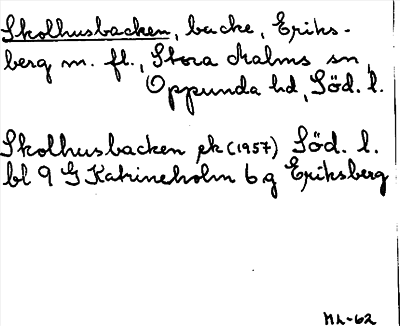 Skolhusbacken, backe, Eriks-
berg m. fl., Stora Malms sn,
Oppunda hd, Söd. l.
Skolhusbacken ek (1957) Söd. l.
bl 9 G Katrineholm 6 g Eriksberg
HL-62